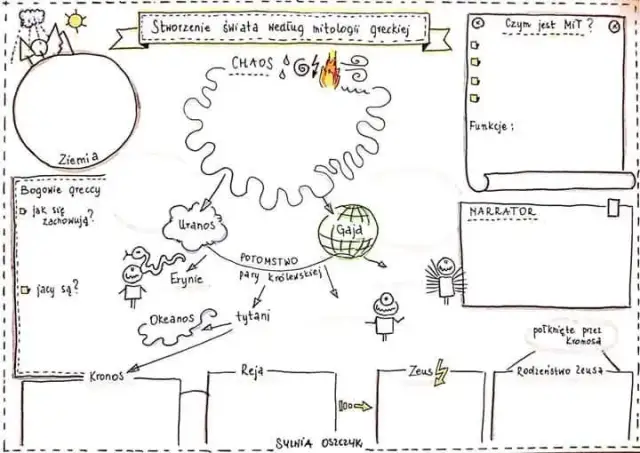 Stworzenie świata według mitologii greckiej
Czym jest MIT?
CHAOS
Funkcje:
Ziemia
Bogowie greccy
jak się
zachowują?
jacy są?
NARRATOR
Uranos
Gaja
POTOMSTWO
pary królewskiej
Erynie
Okeanos
tytani
połknięte przez
Kronosa
Kronos
Reja
Zeus
Rodzeństwo Zeusa
SYLWIA OSZCZYK